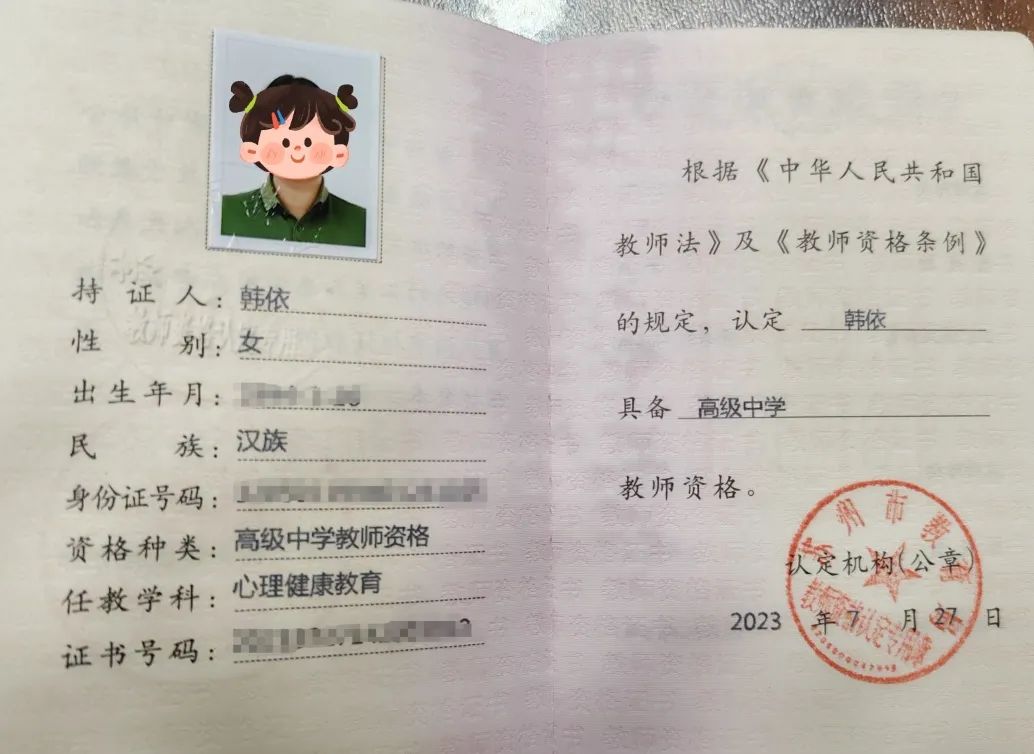 持证人：韩依
性别：女
出生年月：
民族：汉族
身份证号码：
资格种类：高级中学教师资格
任教学科：心理健康教育
证书号码：
根据《中华人民共和国
教师法》及《教师资格条例》
的规定，认定 韩依
具备 高级中学
教师资格。
州市教
认定机构(公章)
教师资格认定专用章
2023 年 7 月 27 日